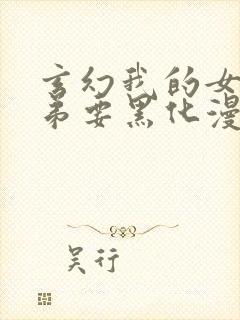 玄幻我的女
弟要黑化漫
吴行